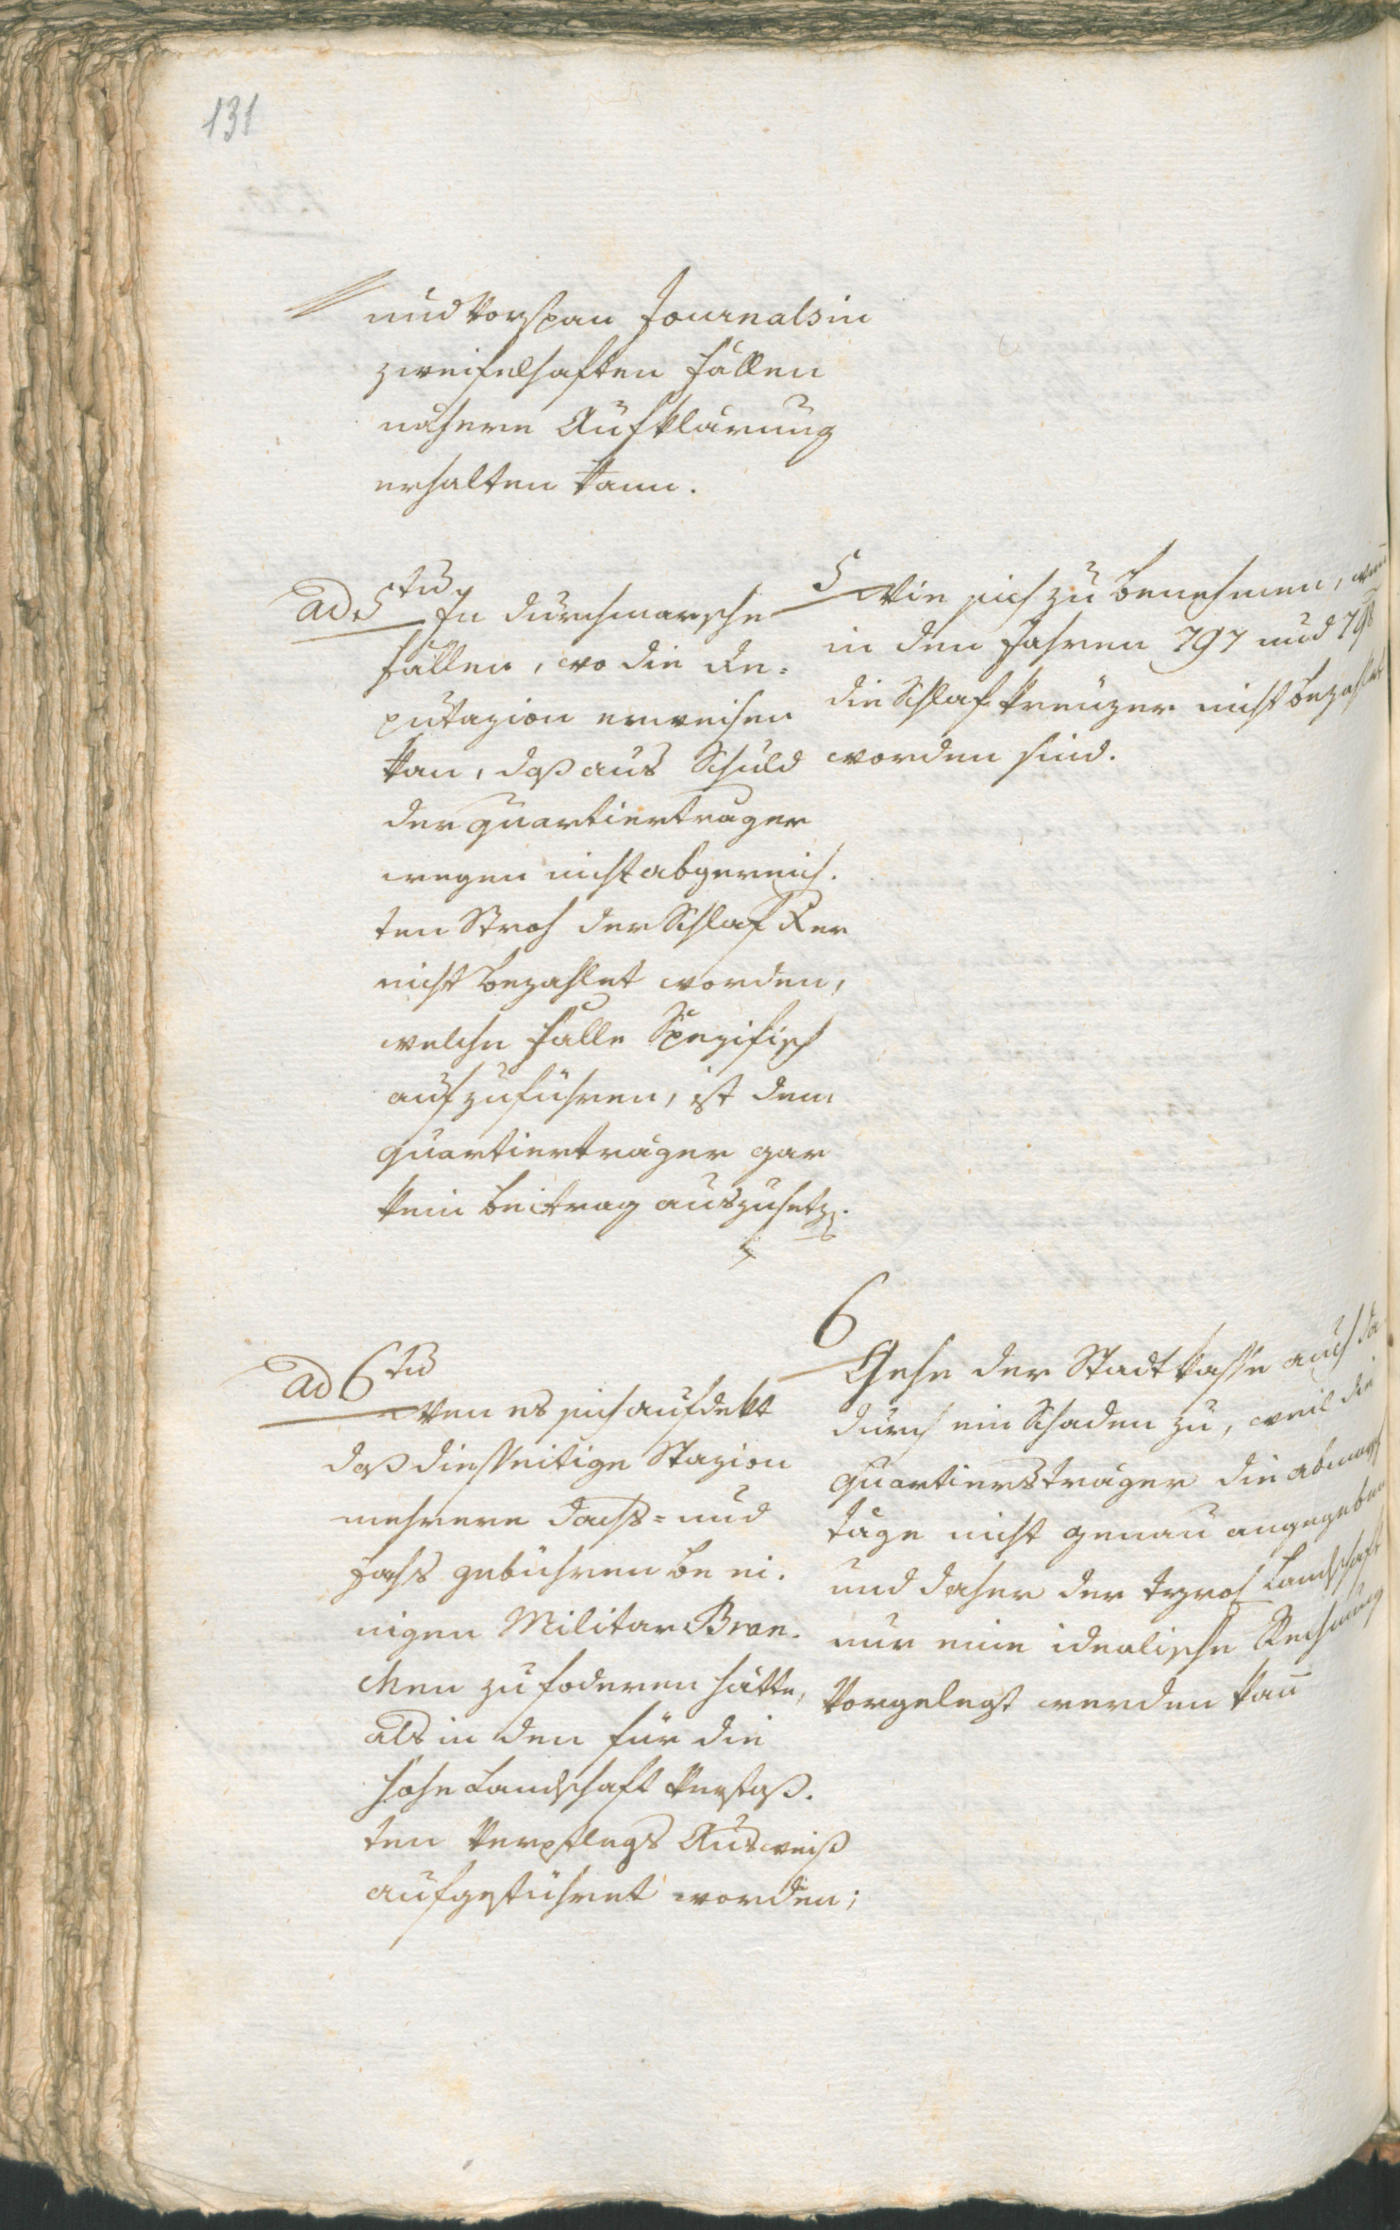 131
und Vorspan Journals in
zweifelhaften Fällen
nähere Aufklärung
erhalten kann.
ad 5tu In Durchmarsche
fällen, wo die De-
putazion erweisen
kan, daß aus Schuld
der Quartierträger
wegen nicht abgereich-
ten Stroh der Schlaf Xer
nicht bezahlet worden,
welche Fälle Spezifisch
aufzuführen, ist dem
Quartierträger gar
kein Beitrag auszusetz.
5 Wie sich zu benehmen, wen
in den Jahren 797 und 798
die Schlafkreuzer nicht bezahlet
worden sind.
ad 6tu
Wen es sich aufdekt
daß diesseitige Stazion
mehrere Dach= und
Fachs gebühren bei ei-
nigen Militar Bran-
chen zu foderen hätte,
als in den für die
hohe Landschaft verfaß-
ten Verpflegs Ausweiß
aufgeführet worden;
6
Gehe der Stadtkasse auch da
durch ein Schaden zu, weil die
Quartiersträger die abmarsch
täge nicht genau angegeben
und daher der tyrol Landschaft
nur eine idealische Rechnung
Vorgelegt werden kan